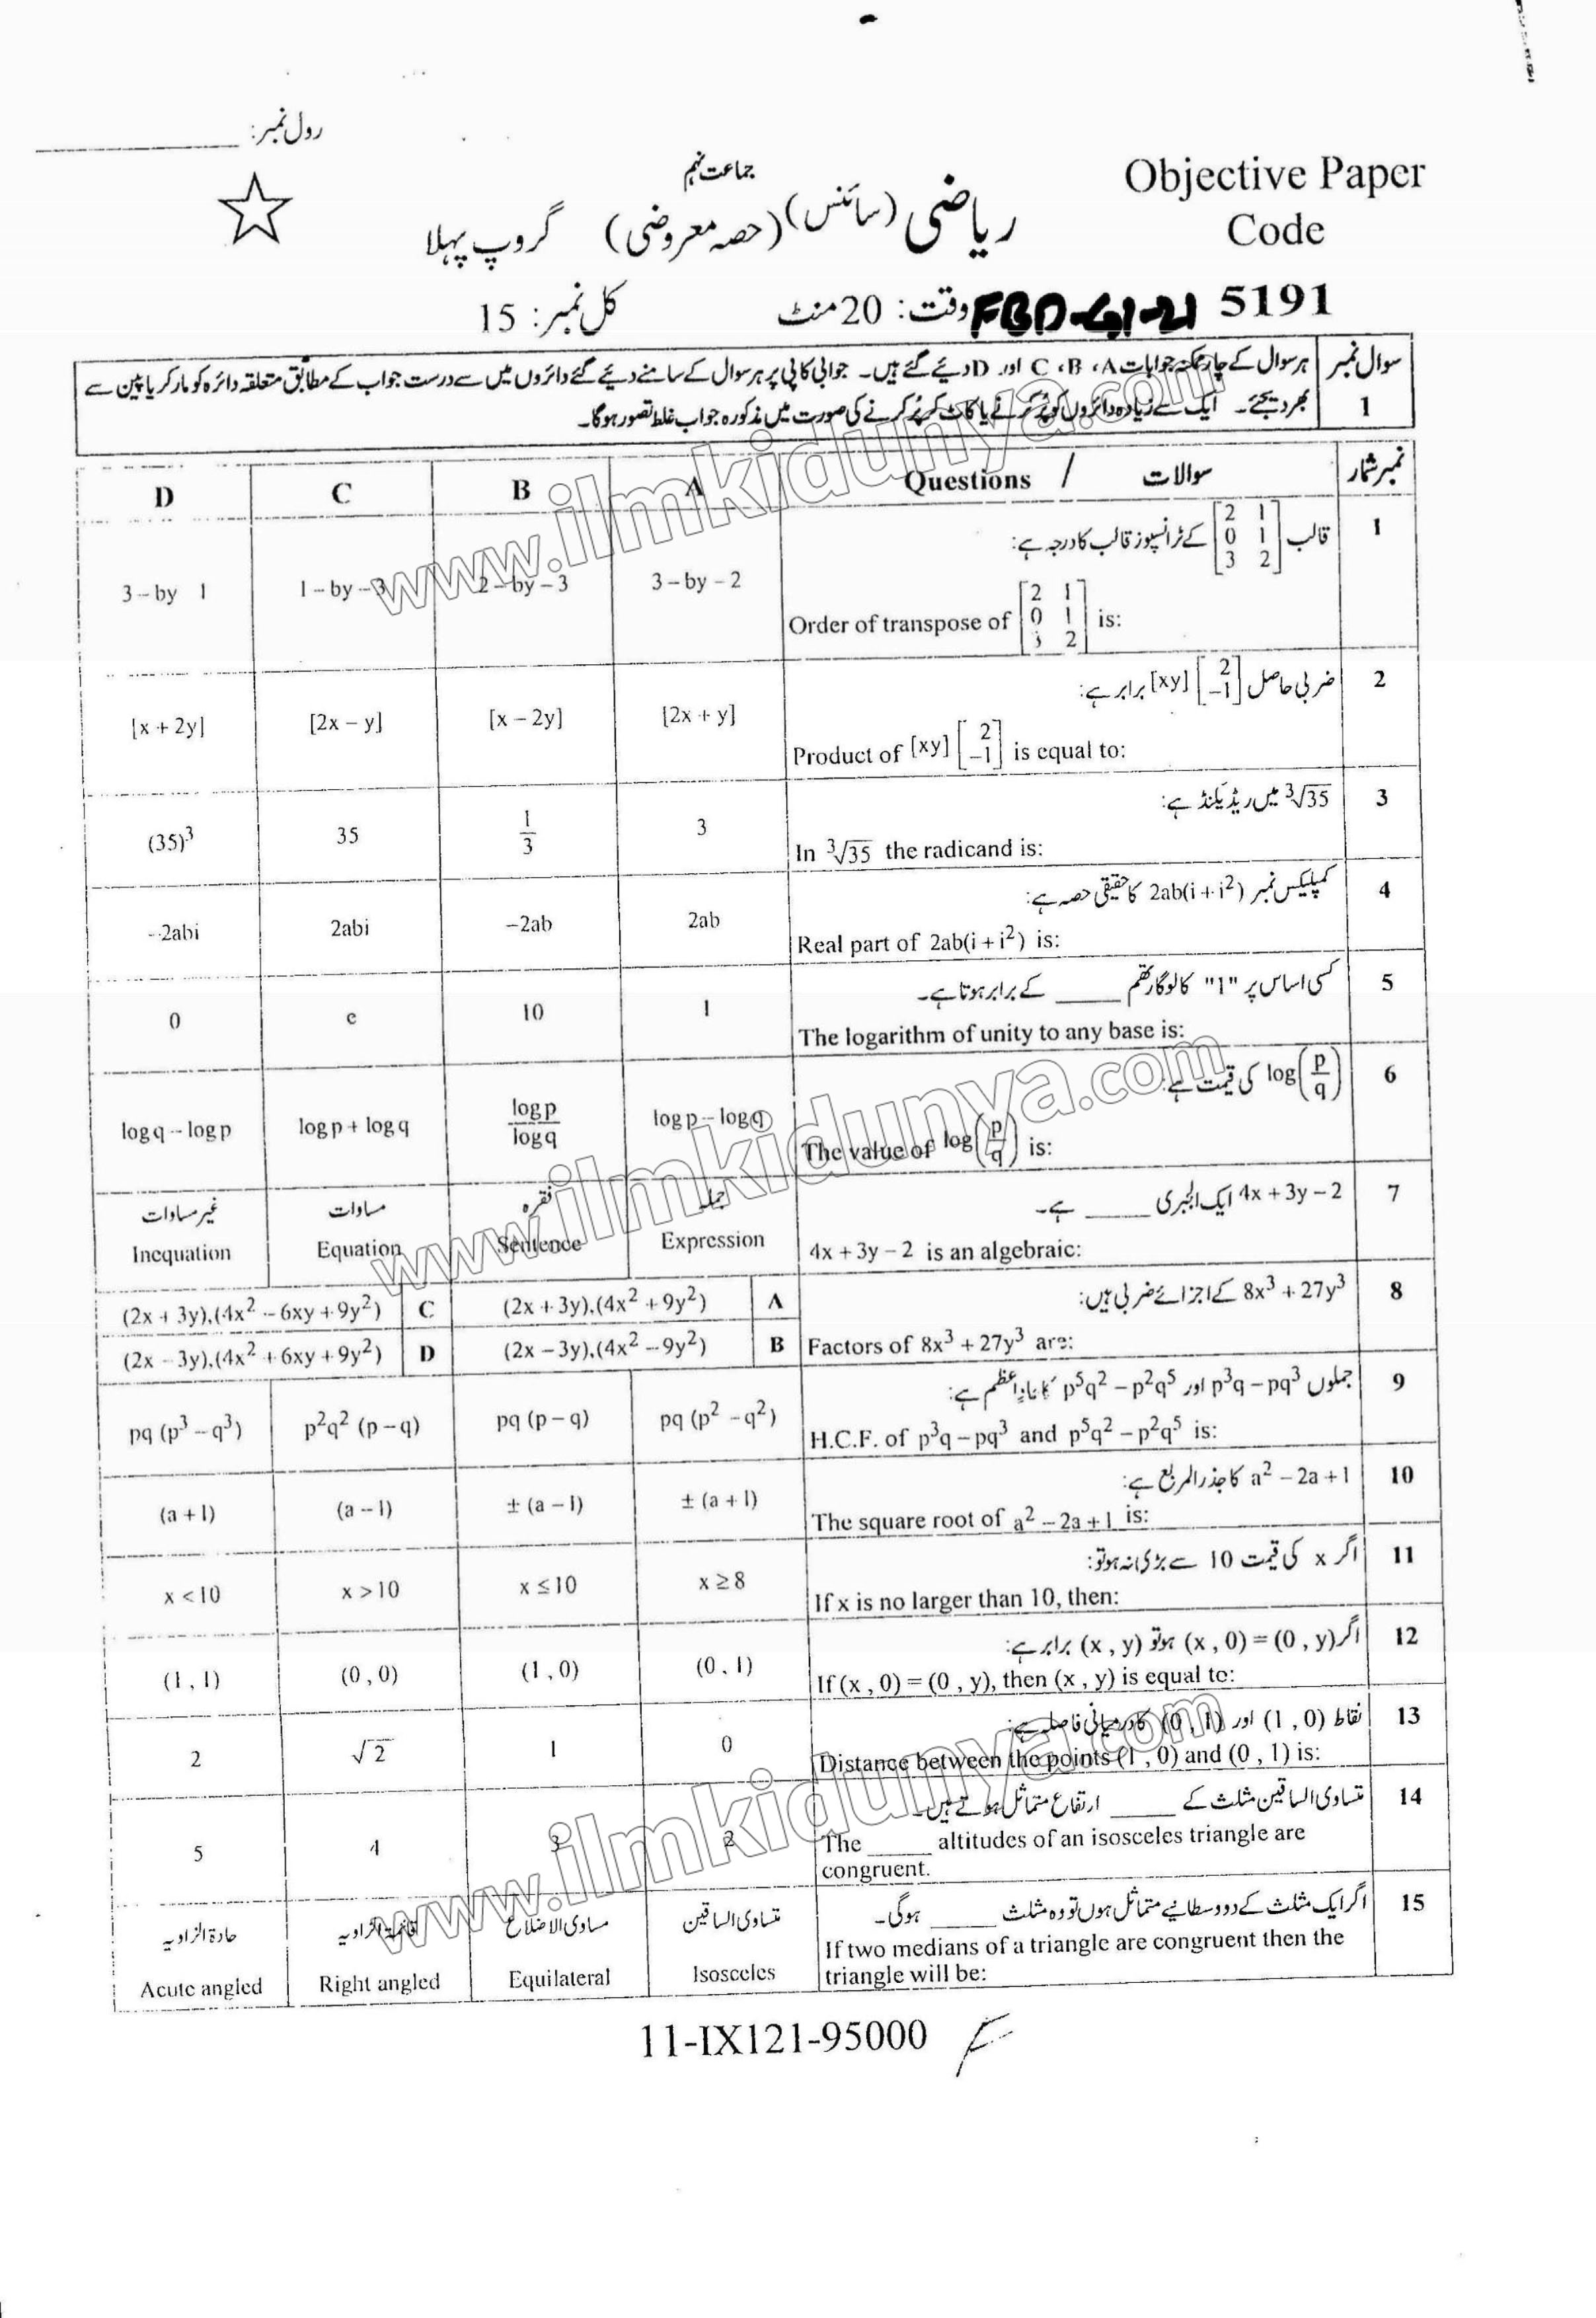 رول نمبر:
جماعت نہم
Objective Paper
Code
5191
ریاضی (سائنس) (حصہ معروضی) گروپ پہلا
FBD-G1-21
وقت: 20 منٹ کل نمبر: 15
سوال نمبر 1
ہر سوال کے چار ممکنہ جوابات A، B، C اور D دیئے گئے ہیں۔ جوابی کاپی پر ہر سوال کے سامنے دیئے گئے دائروں میں سے درست جواب کے مطابق متعلقہ دائرہ کو مارکر یا پین سے
بھر دیجئے۔ ایک سے زیادہ دائروں کو پُر کرنے یا کاٹ کر پُر کرنے کی صورت میں مذکورہ جواب غلط تصور ہوگا۔
نمبر شمار سوالات / Questions A B C D
1 قالب [2 1; 0 1; 3 2] کے ٹرانسپوز قالب کا درجہ ہے:
Order of transpose of [2 1; 0 1; 3 2] is:
3 – by – 2 2 – by – 3 1 – by – 3 3 – by 1
2 ضربی حاصل [xy] [2; –1] برابر ہے:
Product of [xy] [2; –1] is equal to:
[2x + y] [x – 2y] [2x – y] [x + 2y]
3 ∛35 میں ریڈیکنڈ ہے:
In ∛35 the radicand is:
3 1/3 35 (35)³
4 کمپلیکس نمبر 2ab(i + i²) کا حقیقی حصہ ہے:
Real part of 2ab(i + i²) is:
2ab –2ab 2abi –2abi
5 کسی اساس پر "1" کا لوگارتھم _____ کے برابر ہوتا ہے۔
The logarithm of unity to any base is:
1 10 e 0
6 log(p/q) کی قیمت ہے:
The value of log(p/q) is:
log p – log q log p / log q log p + log q log q – log p
7 4x + 3y – 2 ایک الجبری _____ ہے۔
4x + 3y – 2 is an algebraic:
جملہ فقرہ مساوات غیر مساوات
Expression Sentence Equation Inequation
8 8x³ + 27y³ کے اجزائے ضربی ہیں:
Factors of 8x³ + 27y³ are:
A (2x + 3y),(4x² + 9y²) C (2x + 3y),(4x² – 6xy + 9y²)
B (2x – 3y),(4x² – 9y²) D (2x – 3y),(4x² + 6xy + 9y²)
9 جملوں p³q – pq³ اور p⁵q² – p²q⁵ کا عاد اعظم ہے:
H.C.F. of p³q – pq³ and p⁵q² – p²q⁵ is:
pq (p² – q²) pq (p – q) p²q² (p – q) pq (p³ – q³)
10 a² – 2a + 1 کا جذر المربع ہے:
The square root of a² – 2a + 1 is:
± (a + 1) ± (a – 1) (a – 1) (a + 1)
11 اگر x کی قیمت 10 سے بڑی نہ ہو تو:
If x is no larger than 10, then:
x ≥ 8 x ≤ 10 x > 10 x < 10
12 اگر (x , 0) = (0 , y) ہو تو (x , y) برابر ہے:
If (x , 0) = (0 , y), then (x , y) is equal to:
(0 , 1) (1 , 0) (0 , 0) (1 , 1)
13 نقاط (1 , 0) اور (0 , 1) کا درمیانی فاصلہ ہے:
Distance between the points (1 , 0) and (0 , 1) is:
0 1 √2 2
14 متساوی الساقین مثلث کے _____ ارتفاع متماثل ہوتے ہیں۔
The _____ altitudes of an isosceles triangle are
congruent.
2 3 4 5
15 اگر ایک مثلث کے دو وسطانیے متماثل ہوں تو وہ مثلث _____ ہوگی۔
If two medians of a triangle are congruent then the
triangle will be:
متساوی الساقین مساوی الاضلاع قائمۃ الزاویہ حادۃ الزاویہ
Isosceles Equilateral Right angled Acute angled
11-IX121-95000
www.ilmkidunya.com
www.ilmkidunya.com
www.ilmkidunya.com